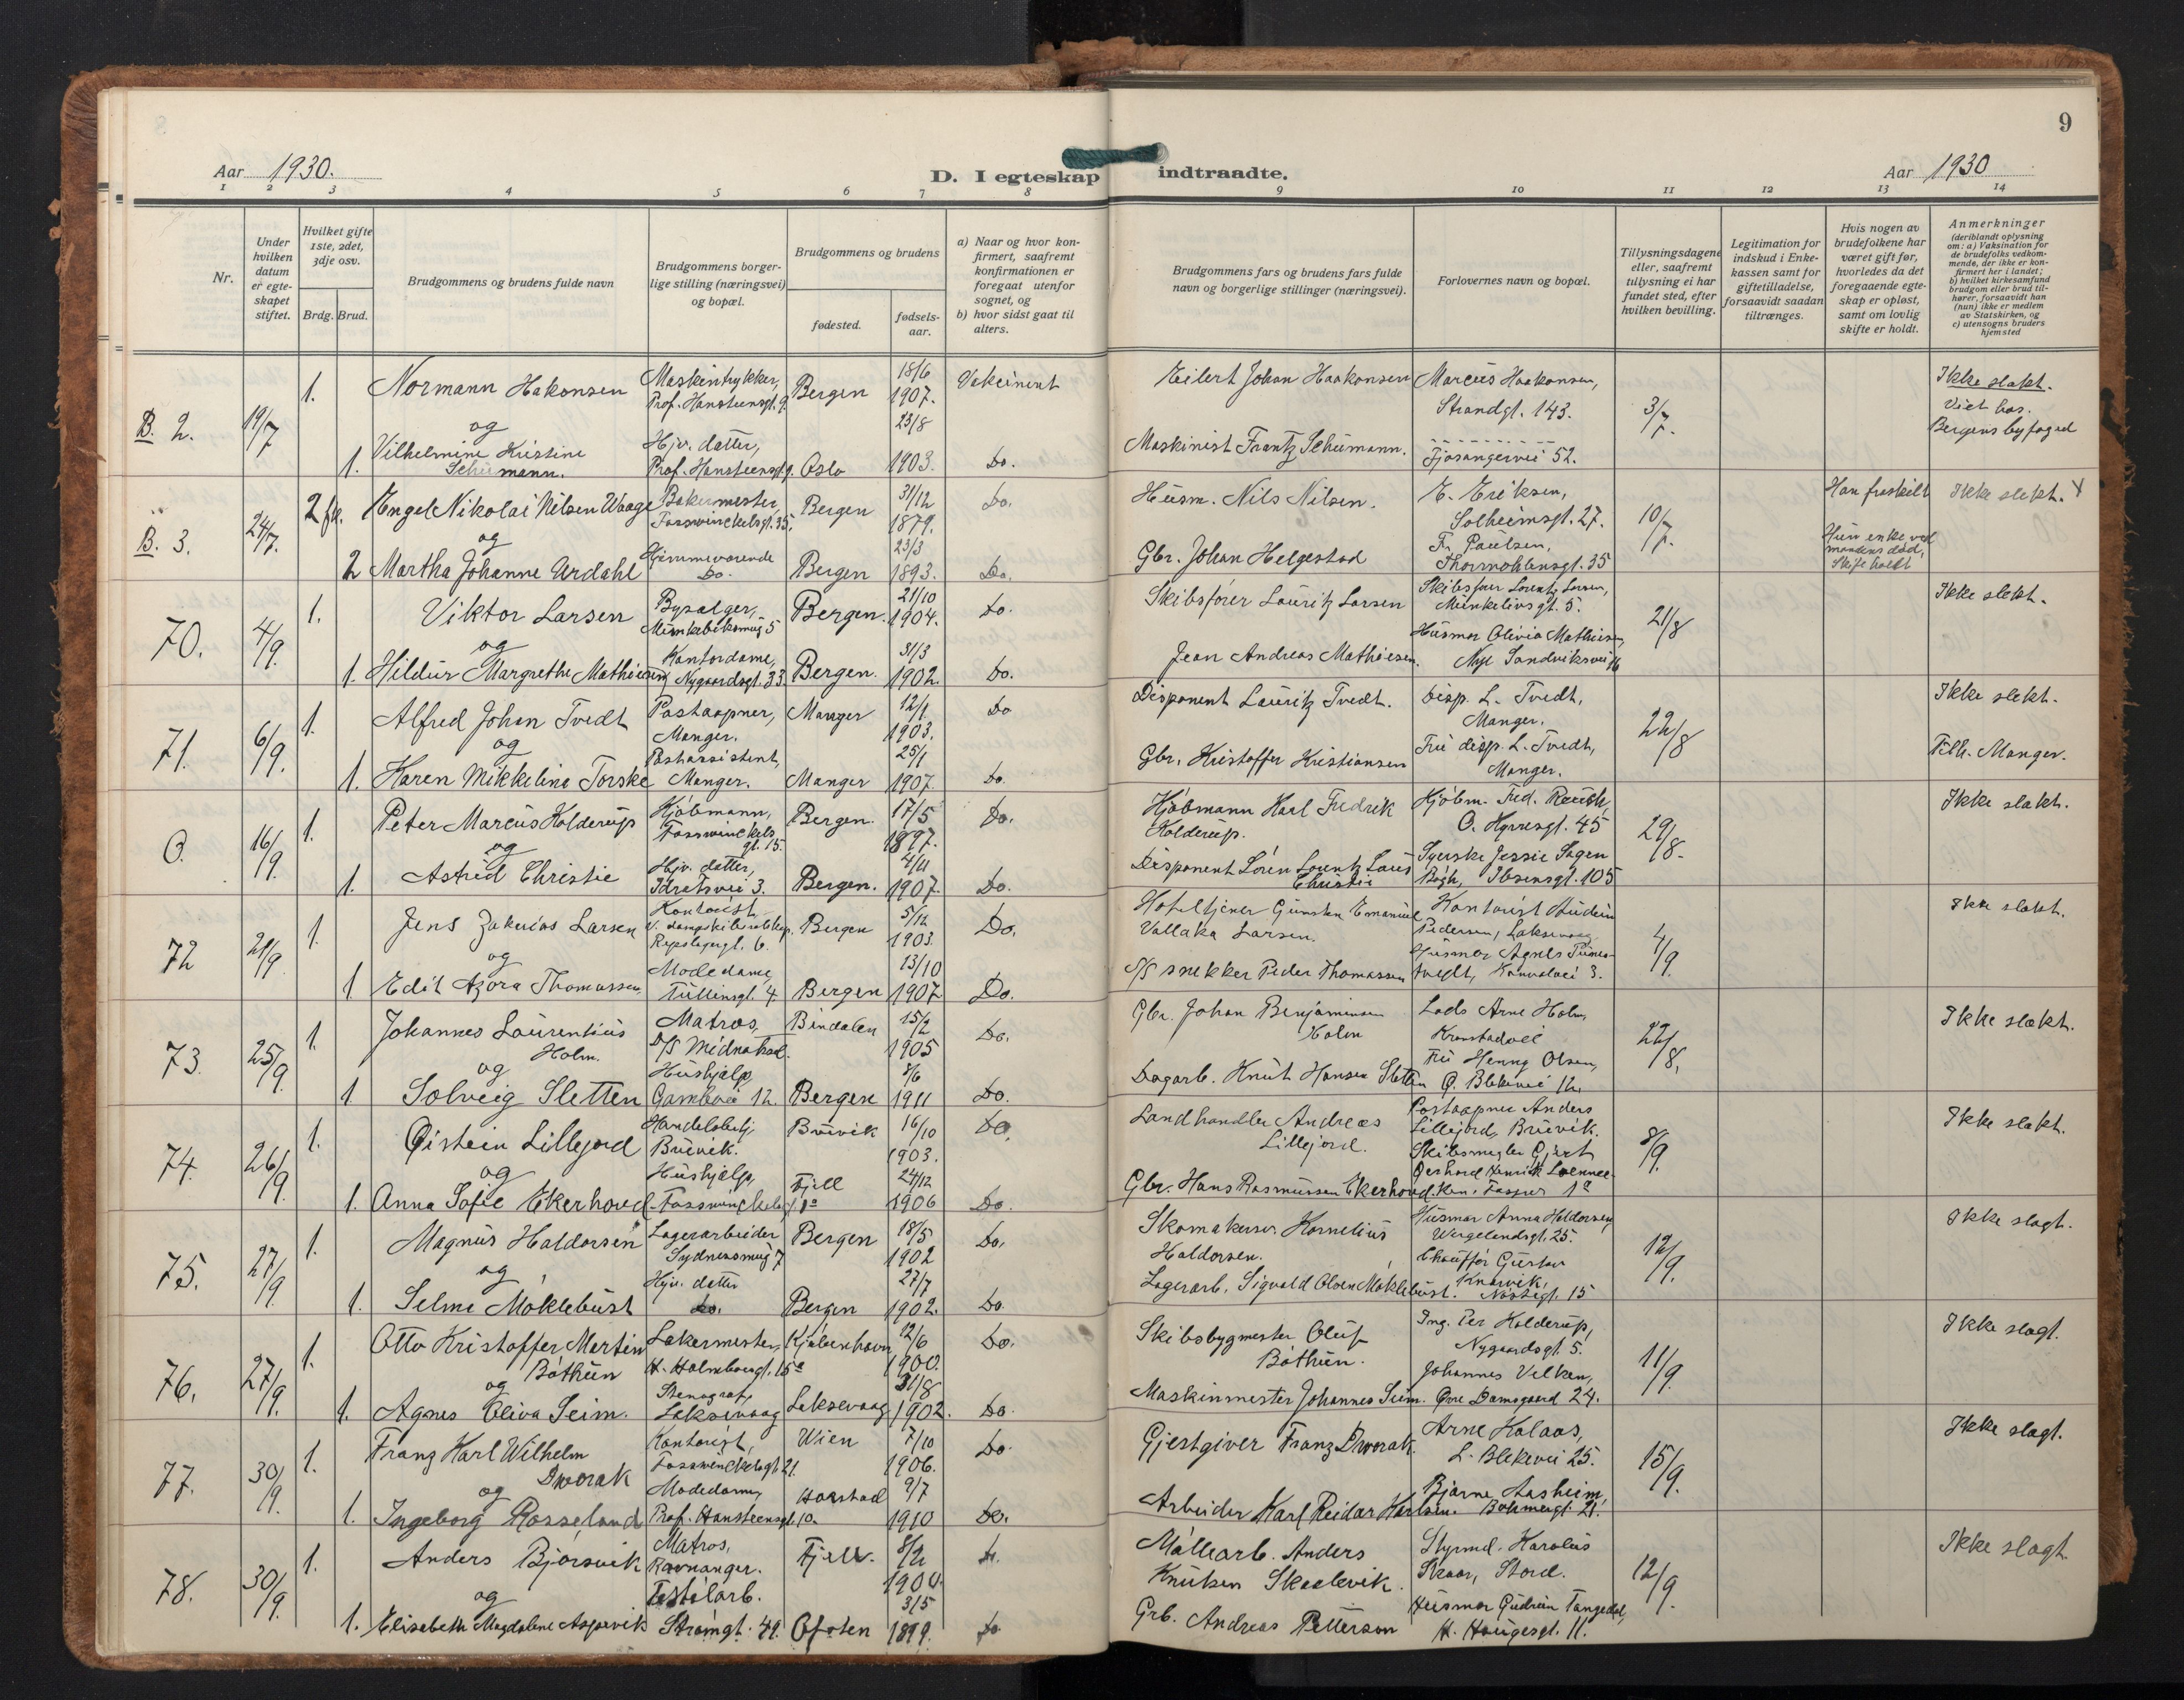 9
Aar 1930.
D. I egteskap indtraadte.
Aar 1930
1 2 3 4 5 6 7 8 9 10 11 12 13 14
Nr.
Under hvilken datum er egteskapet stiftet.
Hvilket gifte 1ste, 2det, 3dje osv.
Brdg. Brud.
Brudgommens og brudens fulde navn
Brudgommens borgerlige stilling (næringsvei) og bopæl.
Brudgommens og brudens
fødested.
fødselsaar.
a) Naar og hvor konfirmert, saafremt konfirmationen er foregaat utenfor sognet, og
b) hvor sidst gaat til alters.
Brudgommens fars og brudens fars fulde navn og borgerlige stillinger (næringsvei).
Forlovernes navn og bopæl.
Tillysningsdagene eller, saafremt tillysning ei har fundet sted, efter hvilken bevilling.
Legitimation for indskud i Enkekassen samt for giftetilladelse, forsaavidt saadan tiltrænges.
Hvis nogen av brudefolkene har været gift før, hvorledes da det foregaaende egteskap er opløst, samt om lovlig skifte er holdt.
Anmerkninger
(deriblandt oplysning om: a) Vaksination for de brudefolks vedkommende, der ikke er konfirmert her i landet; b) hvilket kirkesamfund brudgom eller brud tilhører, forsaavidt han (hun) ikke er medlem av Statskirken, og c) utensogns bruders hjemsted
B. 2. 19/7 1. Normann Hakonsen Maskintrykker, Prof. Hansteensgt. 9. Bergen 18/6 1907. Vakcinert Eilert Johan Haakonsen Marcus Haakonsen, Strandgt. 143. 3/7. Ikke slekt. Viet hos. Bergens byfoged
og
1. Vilhelmine Kristine Schumann. Hjv. datter, Prof. Hansteensgt. 9. Oslo 23/8 1903. Do. Maskinist Frantz Schumann. Fjøsangervei 52.
B. 3. 24/7. 2 fr. Engel Nikolai Nilsen Waage Bakermester, Fosswinckelsgt. 35. Bergen 31/12 1879. Do. Husm. Nils Nilsen. E. Eriksen, Solheimsgt. 27. 10/7. Han fraskilt Ikke slekt.
og
2 Martha Johanne Urdahl Hjemmeværende Do. Bergen 23/3 1893. Do. Gbr. Johan Helgestad Fr. Paulsen, Thormøhlensgt. 35 Hun enke ved mandens død, Skifte holdt
70. 4/9. 1. Viktor Larsen Bysælger, Bergen. 21/10 1904. Do. Skibsfører Lauritz Larsen Skibsfører Lorentz Larsen, Munkelivsgt. 5. 21/8 Ikke slekt.
og
1. Hildur Margrethe Mathiesen Kontordame, Nygaardsgt. 33. Bergen. 31/3 1902. Do. Jean Andreas Mathiesen. Husmor Olivia Mathiesen, Nye Sandviksvei
71. 6/9. 1. Alfred Johan Tvedt Postaapner, Manger. Manger 12/1 1903. Do Disponent Lauritz Tvedt. Disp. L. Tvedt, Manger. 22/8 Ikke slekt.
og
1. Karen Mikkeline Torske Postassistent, Manger. Manger 25/1 1907. Do. Gbr. Kristoffer Kristiansen Fru disp. L. Tvedt, Manger. Tilh. Manger.
O. 16/9. 1. Peter Marcus Kolderup Kjøbmann, Fosswinckels gt. 15. Bergen. 17/5 1897. Do. Kjøbmann Karl Fredrik Kolderup. Kjøbm. Fred. Reusch, O. Kyrresgt. 45 29/8. Ikke slekt.
og
1. Astrid Christie Hjv. datter, Idrætsvei 3. Bergen. 4/11 1907. Do. Disponent Sören Lorentz Christie Syerske Jessie Sagen Bøgh, Ibsensgt. 105
72 21/9. 1. Jens Zakarias Larsen Kontorist, Repslagergt. 6. Bergen 5/12 1903. Do. Hoteltjener Gunstein Emanuel Vallaka Larsen. Kontorist Audun Pedersen, Laksevaag 4/9. Ikke slekt.
og
1. Edit Azora Thomassen. Modedame, Tullinsgt. 4. Bergen 13/10 1907 Do. S/S snekker Peder Thomassen Husmor Agnes
73. 25/9. 1. Johannes Laurentius Holm. Matros, D/S Midnatsol. Bindalen 15/2 1905 Do. Gbr. Johan Benjaminsen Holm Lods Arne Holm, Kronstadvei 22/8. Ikke slekt.
og
1. Solveig Sletten Hushjelp, Gamlevei 12. Bergen 8/6 1911 Do. Dagarb. Knut Hansen Sletten Fru Henny Olsen, O. Blekevei 12.
74. 26/9. 1. Øistein Lillejord Handelsbetj. Bruvik. Bruvik 16/10 1903. Do. Landhandler Andreas Lillejord. Postaapner Anders Lillejord, Bruvik. 8/9. Ikke slekt.
og
1. Anna Sofie Ekerhovd Hushjelp, Fosswinckelsgt. Fjell 24/12 1906 Do. Gbr. Hans Rasmussen Ekerhovd. Skibsmegler Gjert Gerhard Henrik
75. 27/9. 1. Magnus Haldorsen Lagerarbeider Sydnessmug 7 Bergen 18/5 1902 Do. Skomakersv. Kornelius Haldorsen. Husmor Anna Haldorsen Wergelandsgt. 25. 12/9. Ikke slegt.
og
1. Selma Møklebust Hjv. datter Do. Bergen 27/7 1902. Do. Lagerarb. Sigvald Olsen Møklebust. Chauffør Gustav Knarvik, Nøstegt. 15
76. 27/9. 1. Otto Kristoffer Martin Bøthun Lakermester, H. Holmboesgt. 15a Kjøbenhavn 12/6 1900. Do. Skibsbygmester Oluf Bøthun. Ing. Per Kolderup, Nygaardsgt. 5. 11/9. Ikke slegt.
og
1. Agnes Oliva Seim. Stenograf, Laksevaag Laksevaag 31/8 1902. Do. Maskinmester Johannes Seim. Johannes Velken, Øvre Damsgaard 24.
77. 30/9. 1. Franz Karl Wilhelm Dworak Kontorist, Fosswinckelsgt. 21. Wien 7/10 1906. Do. Gjestgiver Franz Dworak. Arne Kalaas, L. Blekevei 25. 15/9. Ikke slegt.
og
1. Ingeborg Rosseland Modedame, Prof. Hansteensgt. 10. Harstad 9/7 1910 Do. Arbeider Karl Reidar Karlsen. Bjarne Aasheim, Bøhmergt. 21.
78. 30/9. 1. Anders Bjørsvik Matros, Ravnanger. Fjell. 8/2 1900. Møllearb. Anders Knutsen Skaalevik. Styrmd. Karolus Skaar, Stord. 12/9. Ikke slegt.
og
1. Elisabeth Magdalene Aspevik Strømgt. 49. Ofoten 3/5 1899. Do. Grb. Andreas Petterson Husmor Gudrun Tangedal, H. Haugesgt. 11.